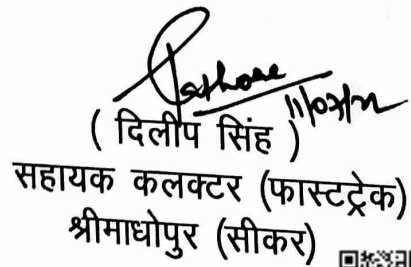 Rathore
11/07/22
( दिलीप सिंह )
सहायक कलक्टर (फास्टट्रेक)
श्रीमाधोपुर (सीकर)